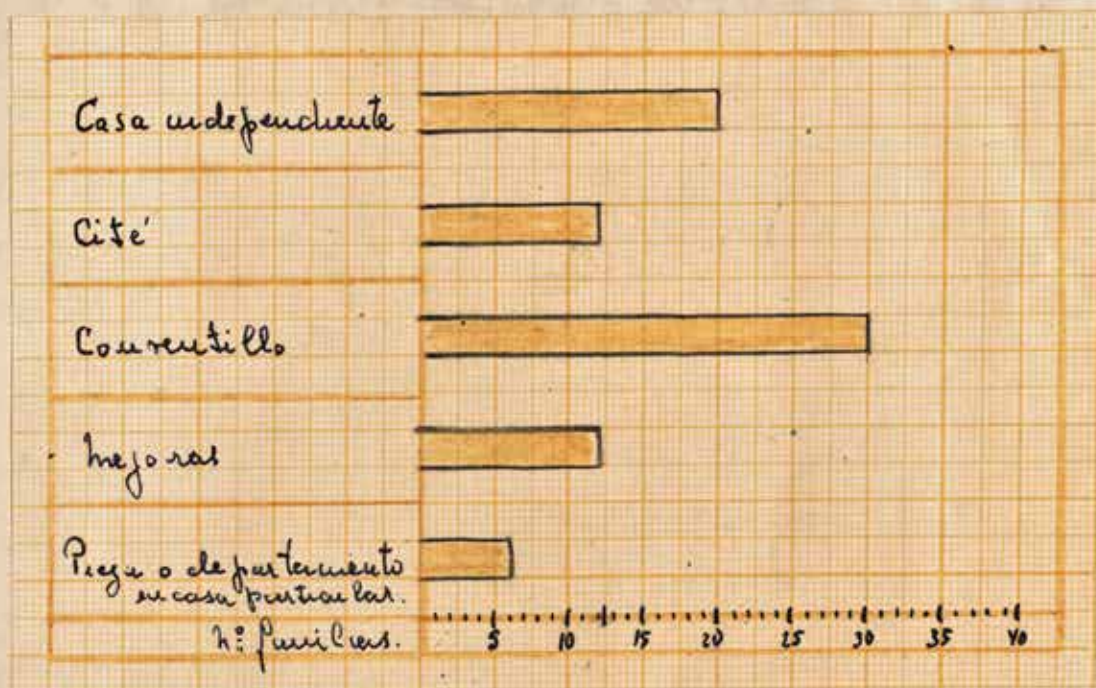 Casa independiente
Cité
Conventillo
Mejoras
Pieza o departamiento
en casa particular.
N° familias.
5 10 15 20 25 30 35 40